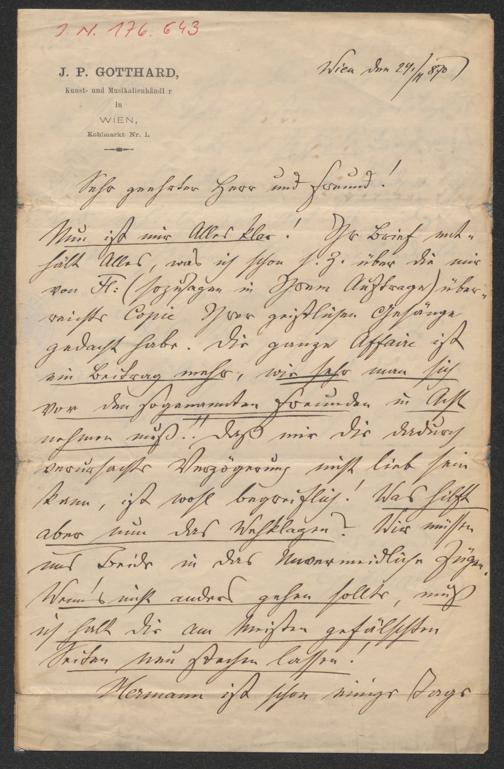 I. N. 176.643
J. P. GOTTHARD,
Kunst- und Musikalienhändl r
in
WIEN,
Kohlmarkt Nr. 1.
Wien den 24./11 870
Sehr geehrter Herr und Freund!
Nun ist mir Alles klar! Ihr Brief ent-
hält Alles, was ich schon s. Z. über die mir
von Fl: (sozusagen in Ihrem Auftrage) über-
reichte Copie Ihrer geistlichen Gesänge
gedacht habe. Die ganze Affaire ist
ein Beitrag mehr, wie sehr man sich
vor den sogenannten Freunden in Acht
nehmen muß.. Daß mir die dadurch
verursachte Verzögerung nicht lieb sein
kann, ist wohl begreiflich! Was hilft
aber nun das Wehklagen? Wir müssen
uns Beide in das Unvermeidliche fügen.
Wenn's nicht anders gehen sollte, muß
ich halt die am Meisten gefälschten
Seiten neu stechen lassen!
Hermann ist schon einige Tage